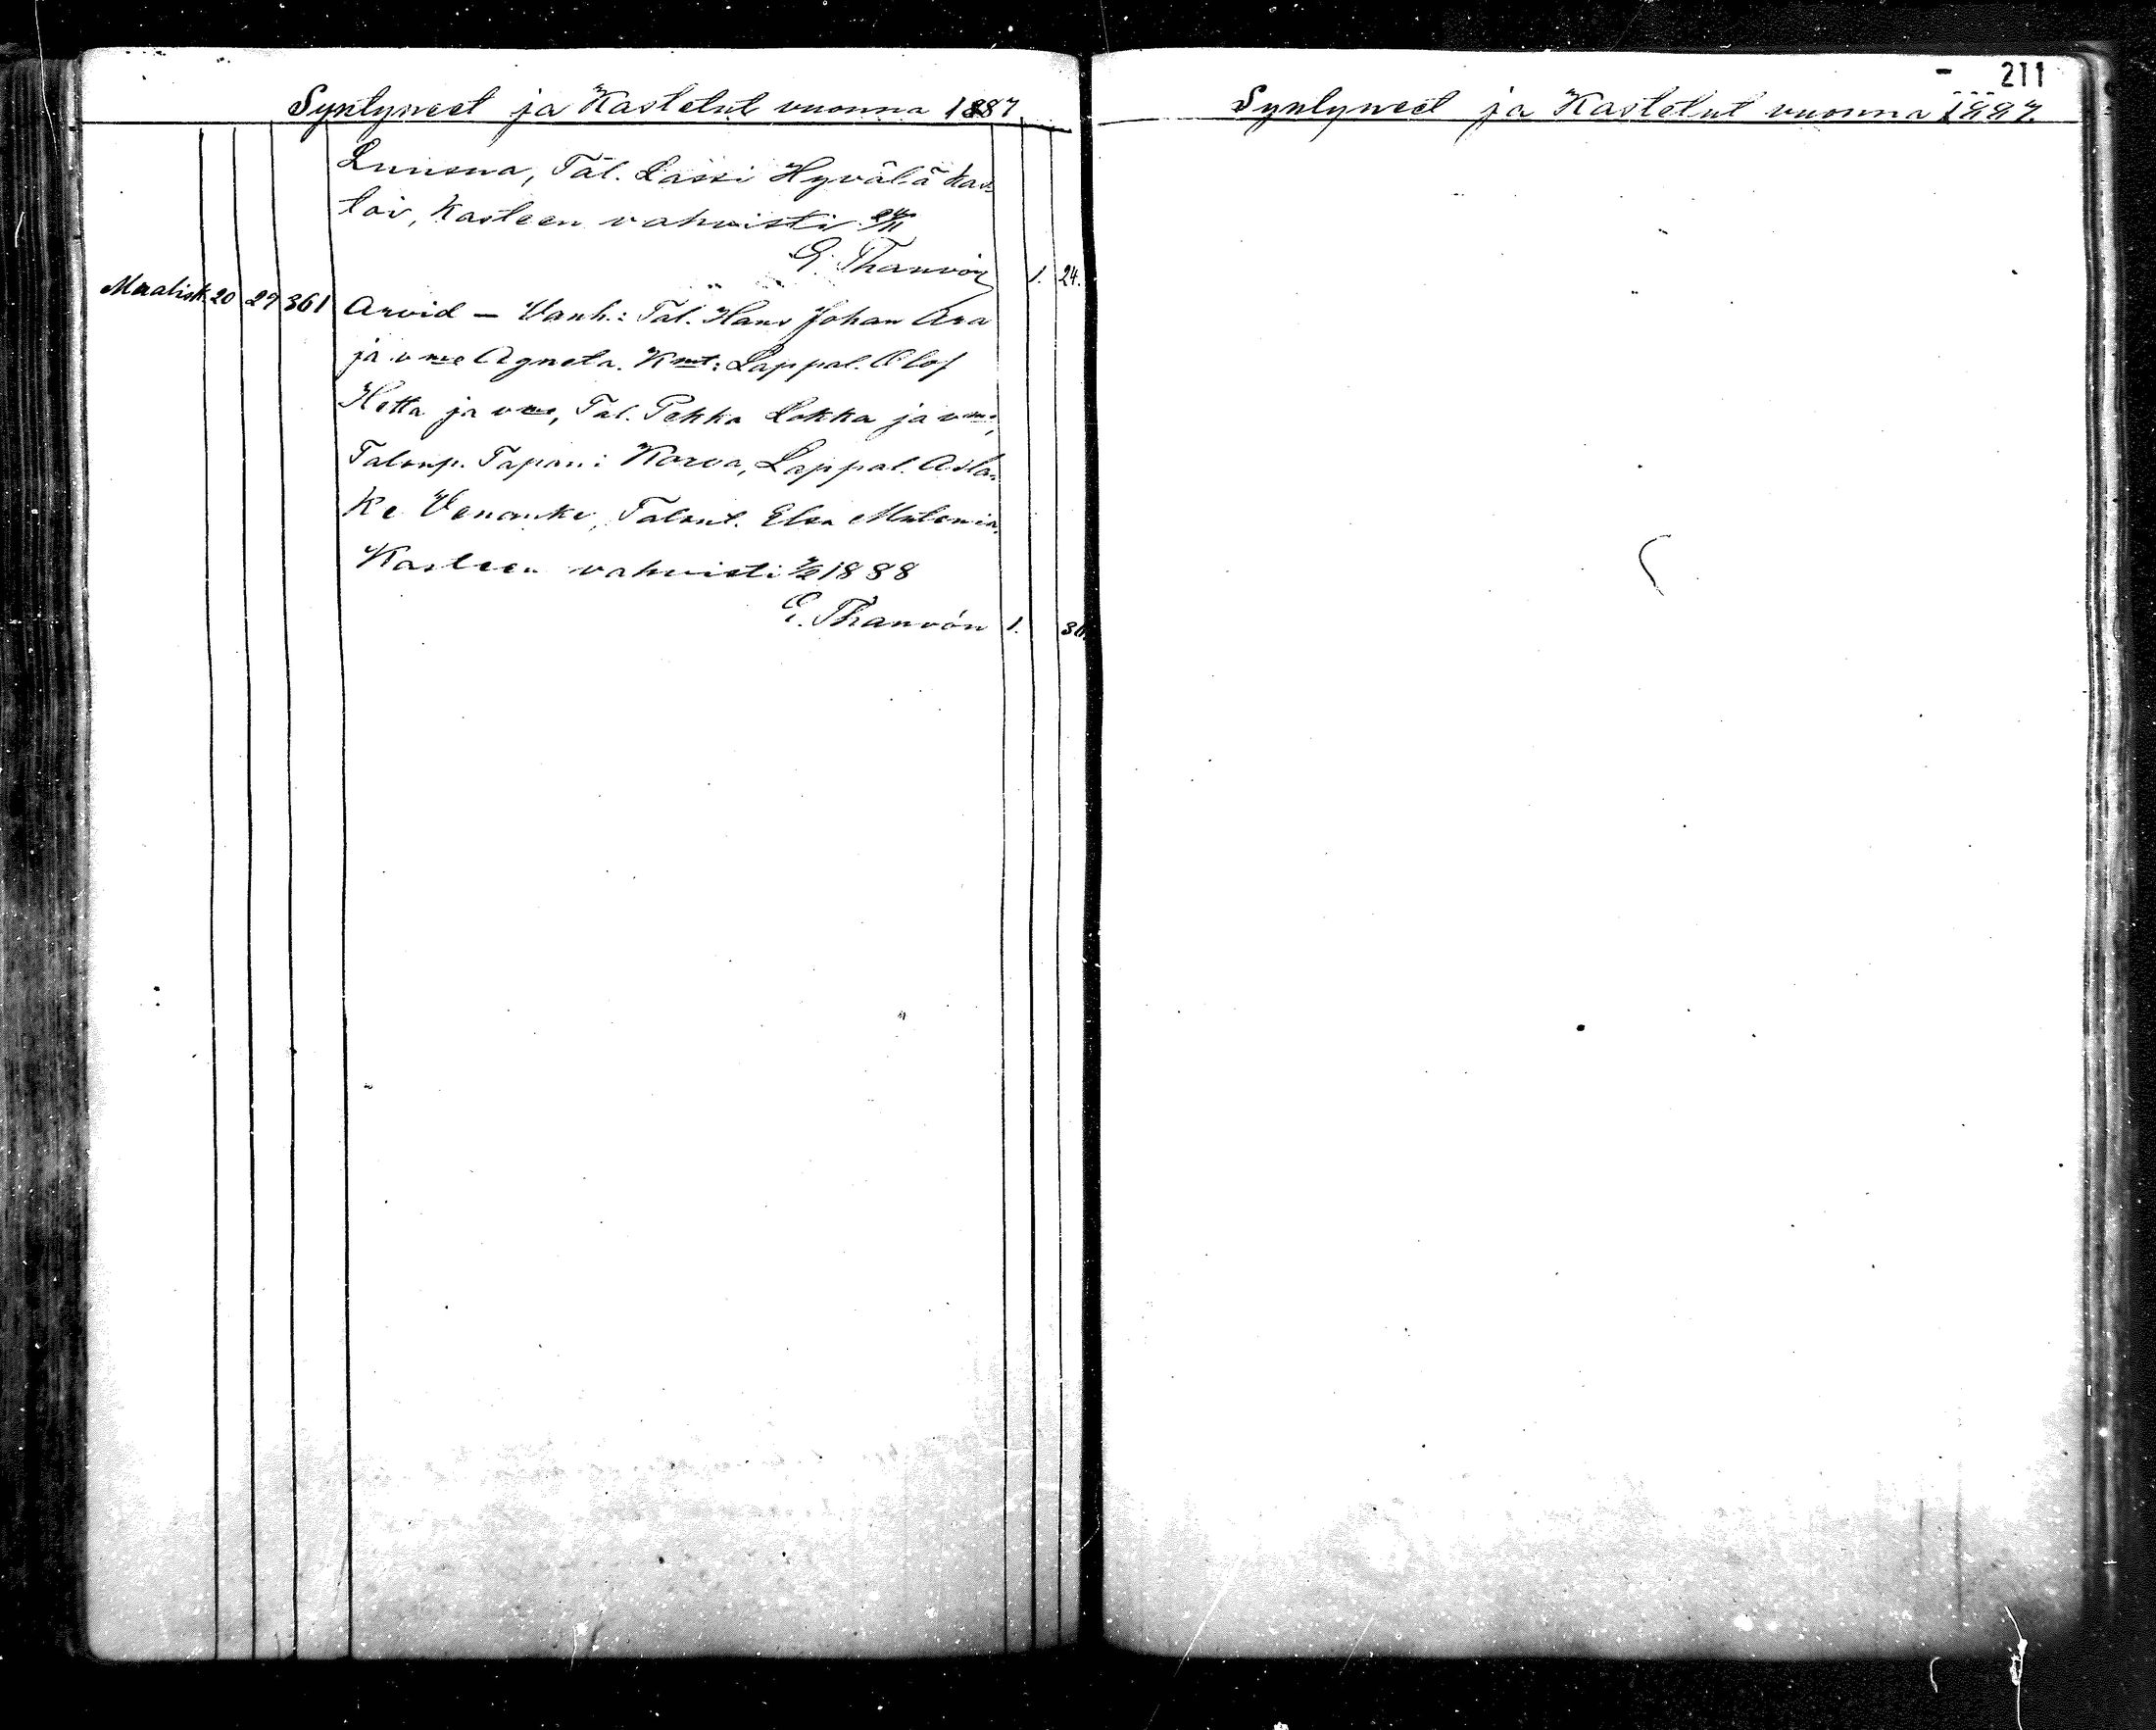 Syntyneet ja Kastetut vuonna 1887
Tal. Lassi Hyvälä kas-
toi, Kasteen vahvisti 24/11
E. Thauvón 1. 24.
Maalisk. 20 27 361 Arvid — Vanh.: Tal. Hans Johan Ara
ja vmo Agneta. Kmt: Lappal. Olof
Hetta ja vmo, Tal. Pekka Lokka ja vmo,
Talonp. Tapani Korva, Lappal. Asla-
Talont. Elsa
Kasteen vahvisti 1888
E. Thauvón 1. 30.
211
Syntyneet ja Kastetut vuonna 1887.